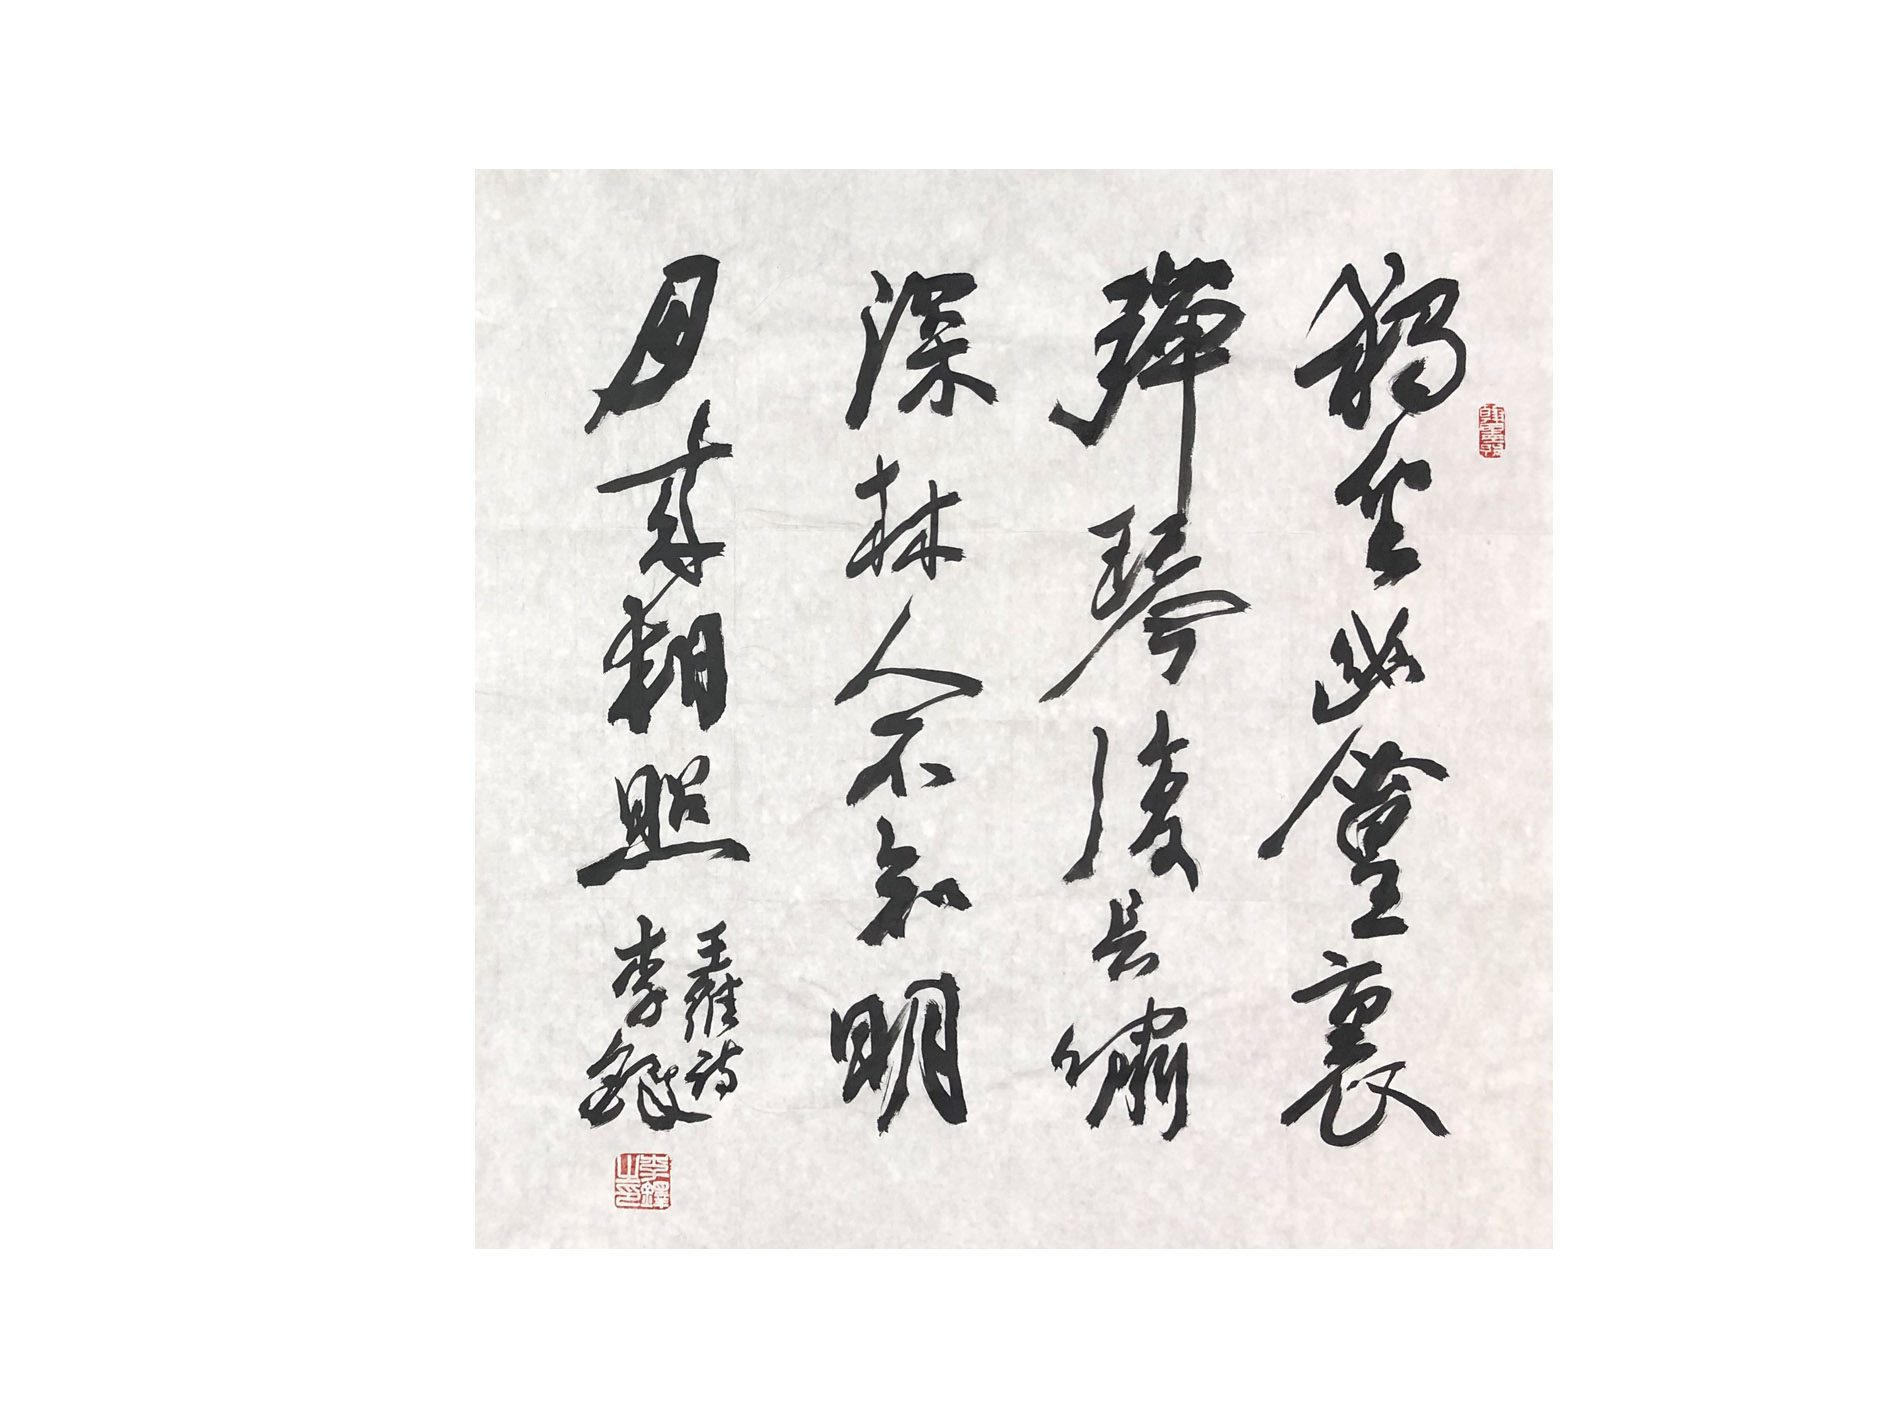 獨坐幽篁裏
彈琴復長嘯
深林人不知明
月來相照
王維詩
李鐸
李鐸之印